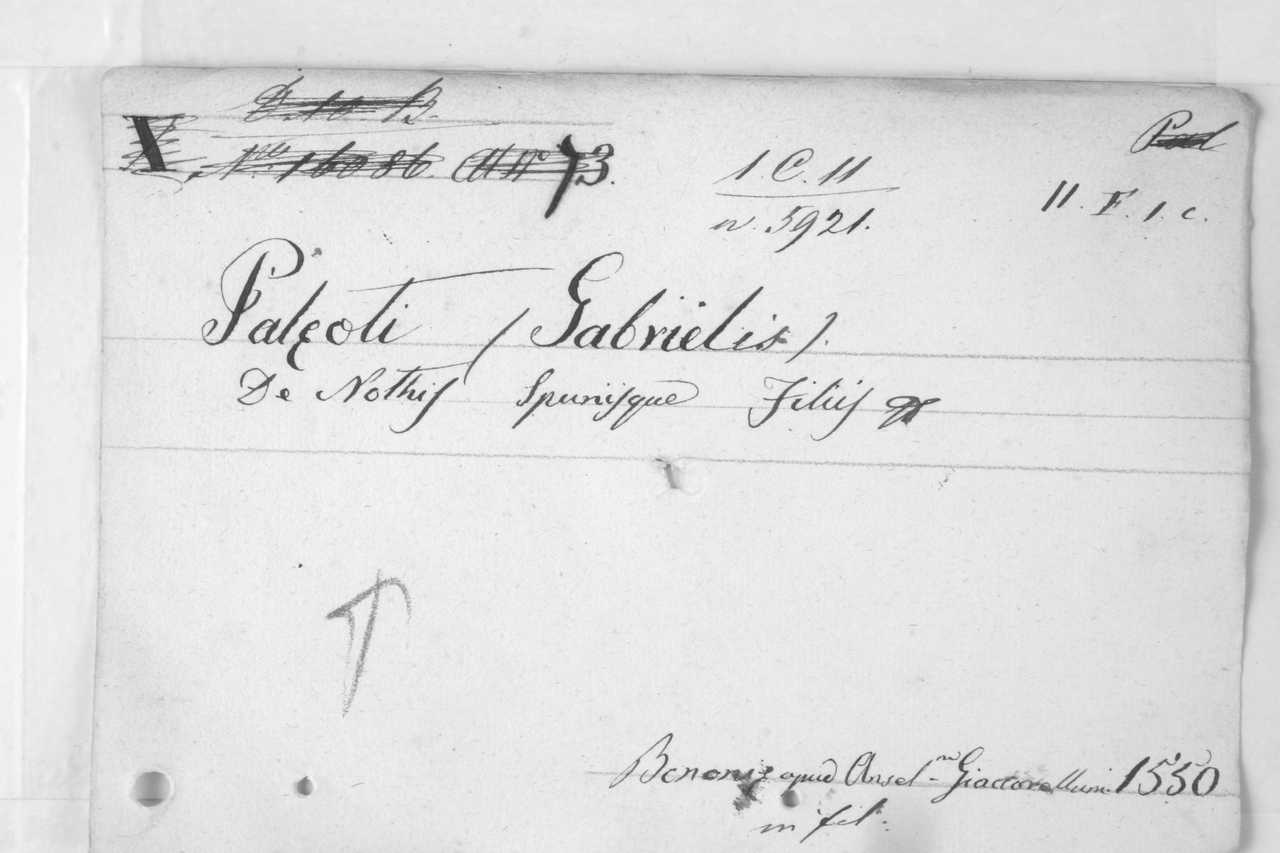 D. 10 B.
X. N.º 16086. 73.
1. C. 11
n. 5921.
11. F. 1. c.
Palęoti (Gabriëlis).
De Nothis Spuriisque Filiis
Bononię apud Ansel-mũ Giaccarellum 1550
in fol.